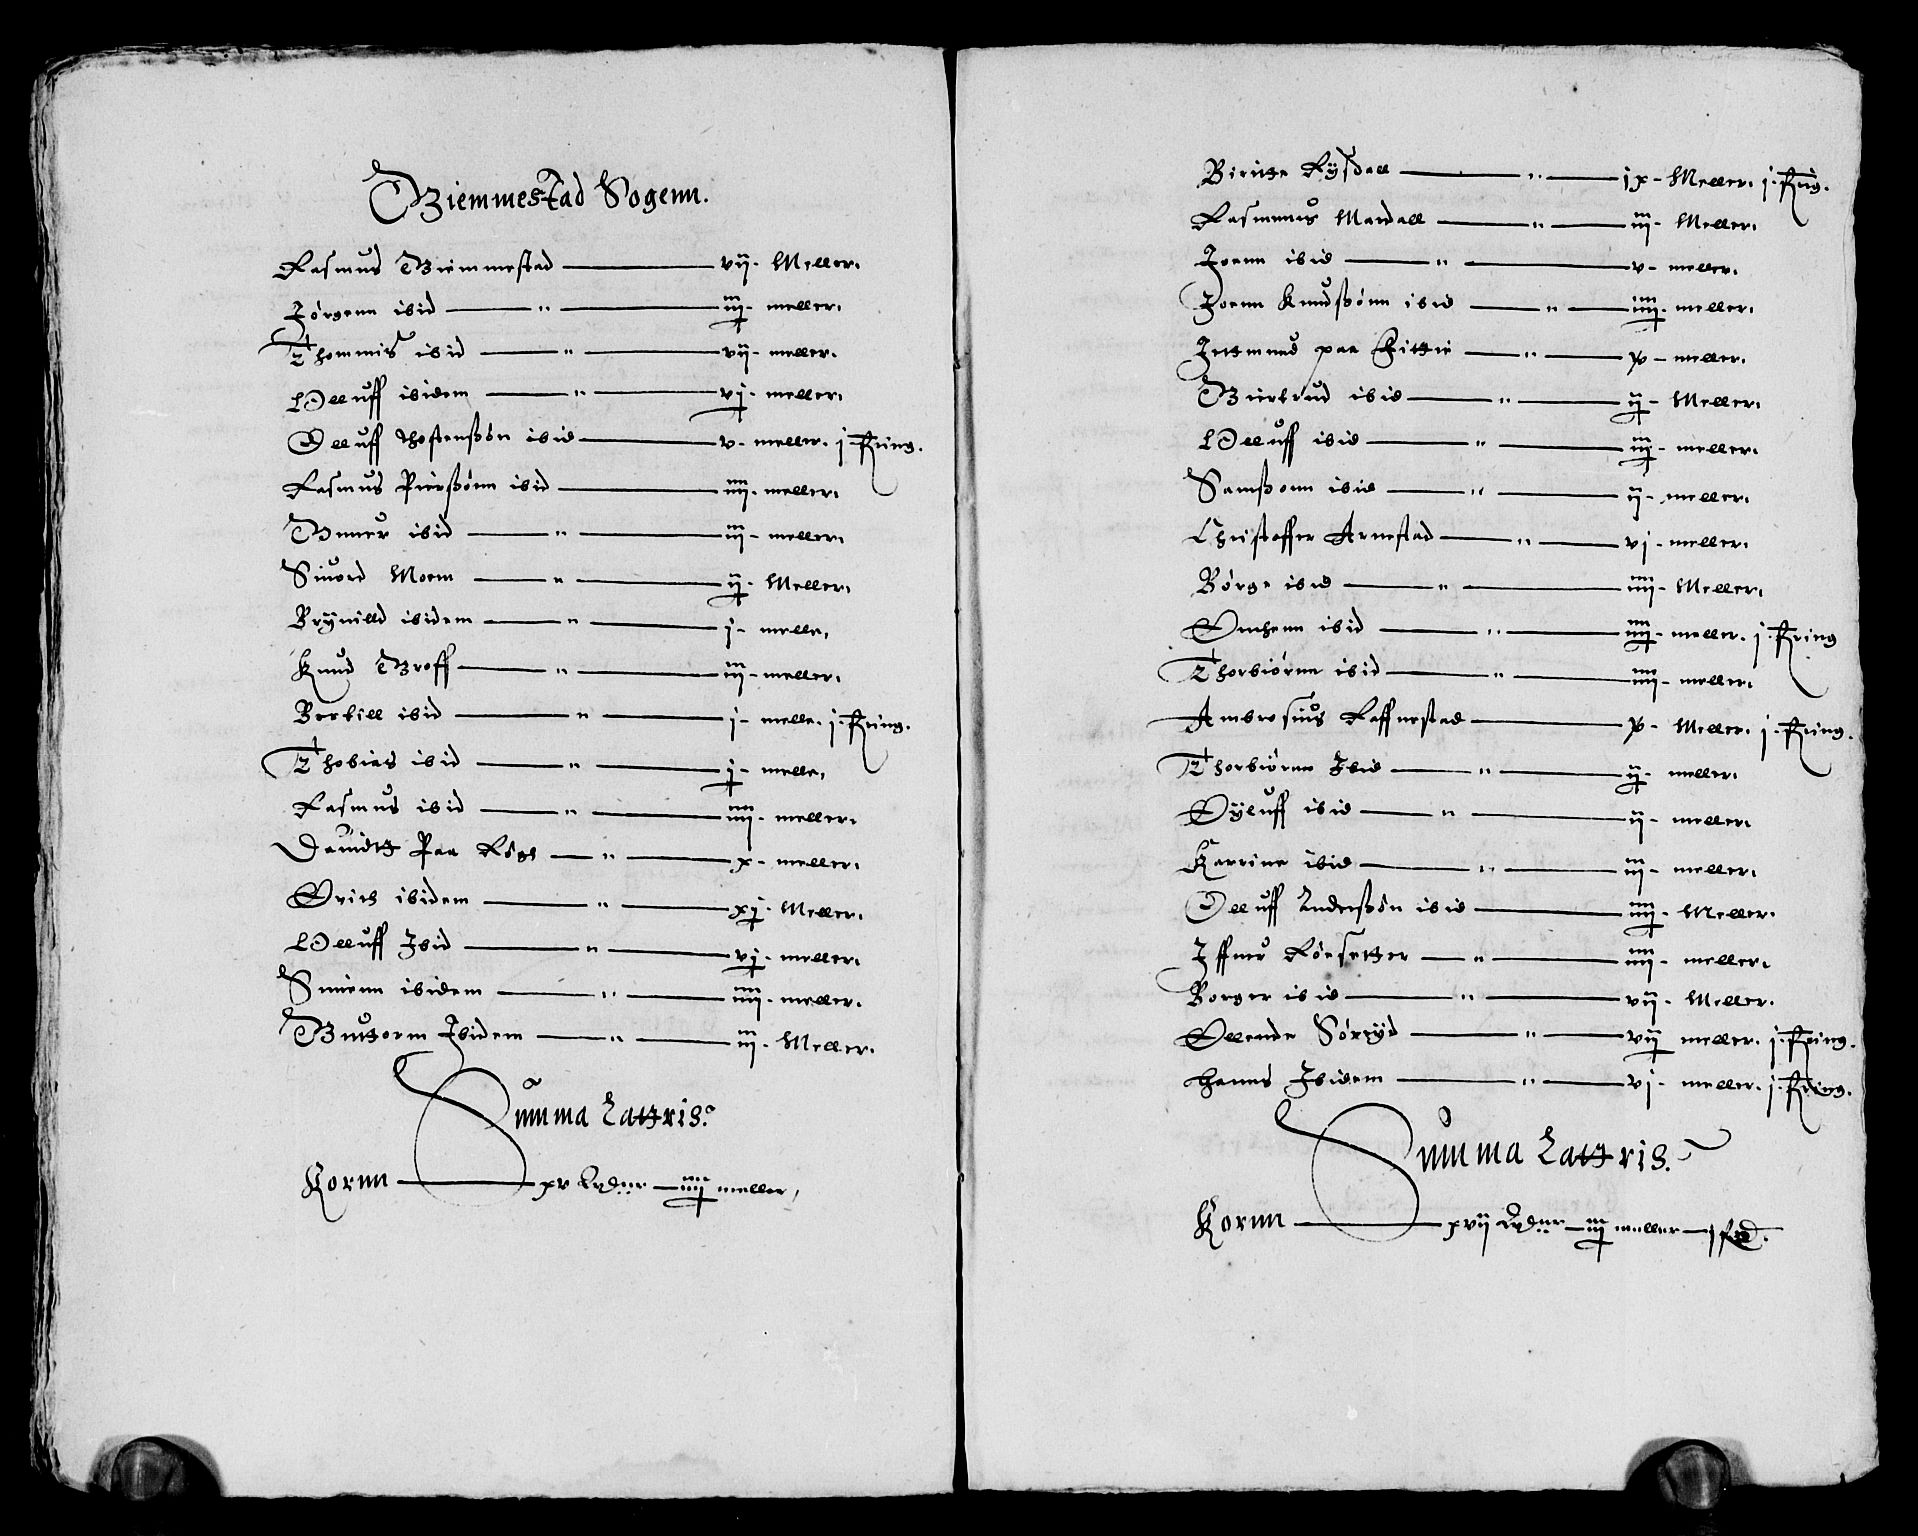 Giemmestad Sogenn.
Rasmus Giemmestad — vij - Meller.
Jørgenn ibid — " — iij - meller.
Thommis ibid — " — vij - meller.
Olluff ibidem — " — vj - meller.
Olluff Thostenßøn ibid — v - meller. j Fring.
Rasmus Pierßønn ibid — iiij - meller.
Gunner ibid — " — iij - meller.
Siuord Moenn — " — ij - Meller.
Brynilld ibidem — " — j - melle.
Knud Groff — " — iij - meller.
Bertill ibid — " — j - melle. j Fring.
Thobias ibid — " — j - melle.
Rasmus ibid — " — iiij - meller.
Dauidtt Paa — " — x - meller.
Erich ibidem — " — xj - Meller.
Olluff Ibid — " — vj - meller.
Simenn ibidem — " — iiij - meller.
Guttorm Ibidem — " — iij - Meller.
Summa Lattris.
Kornn — xv — iiij meller.
Biritte — " — ix - Meller. j Fring.
Rasmmus Mardall — " — iij - Meller.
Joenn ibid — " — v - meller.
Joenn Knudßønn ibid — " — iiij - meller.
paa — " — x - meller.
Giertrud ibid — " — ij - Meller.
Olluff ibid — " — iij - meller.
Samßonn ibid — " — ij - meller.
Christoffer Arnestad — " — vj - meller.
Børge ibid — " — iiij - Meller.
ibid — " — iiij - meller. j Fring
Thorbiørnn ibid — " — iiij - meller.
Ambrosius Raffnestad — x - Meller. j Fring.
Thorbiørnn Ibid — " — ij - meller.
ibid — " — ij - meller.
Karrine ibid — " — iij - meller.
Olluff Anderßøn ibid — iiij - Meller.
Iffuer Rønsetter — " — iiij - meller.
Borger ibid — " — vij - Meller.
Ellende — " — vij meller. j Fring.
Hanns Ibidem — " — vj - meller. j Fring.
Summa Lattris.
Kornn — xvij — iij meller — j